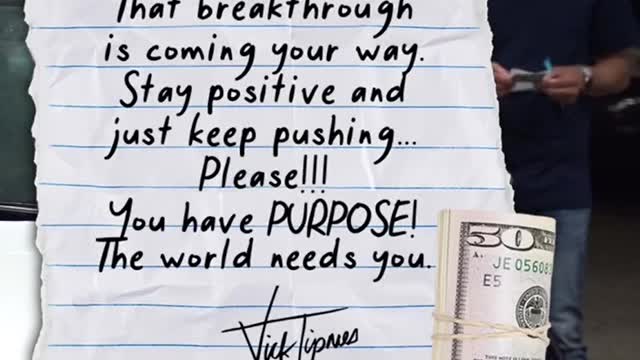 That breakthrough
is coming your way.
Stay positive and
just keep pushing...
Please!!!
You have PURPOSE!
The world needs you.
Vick Tipnes
50
JE 05608
E5